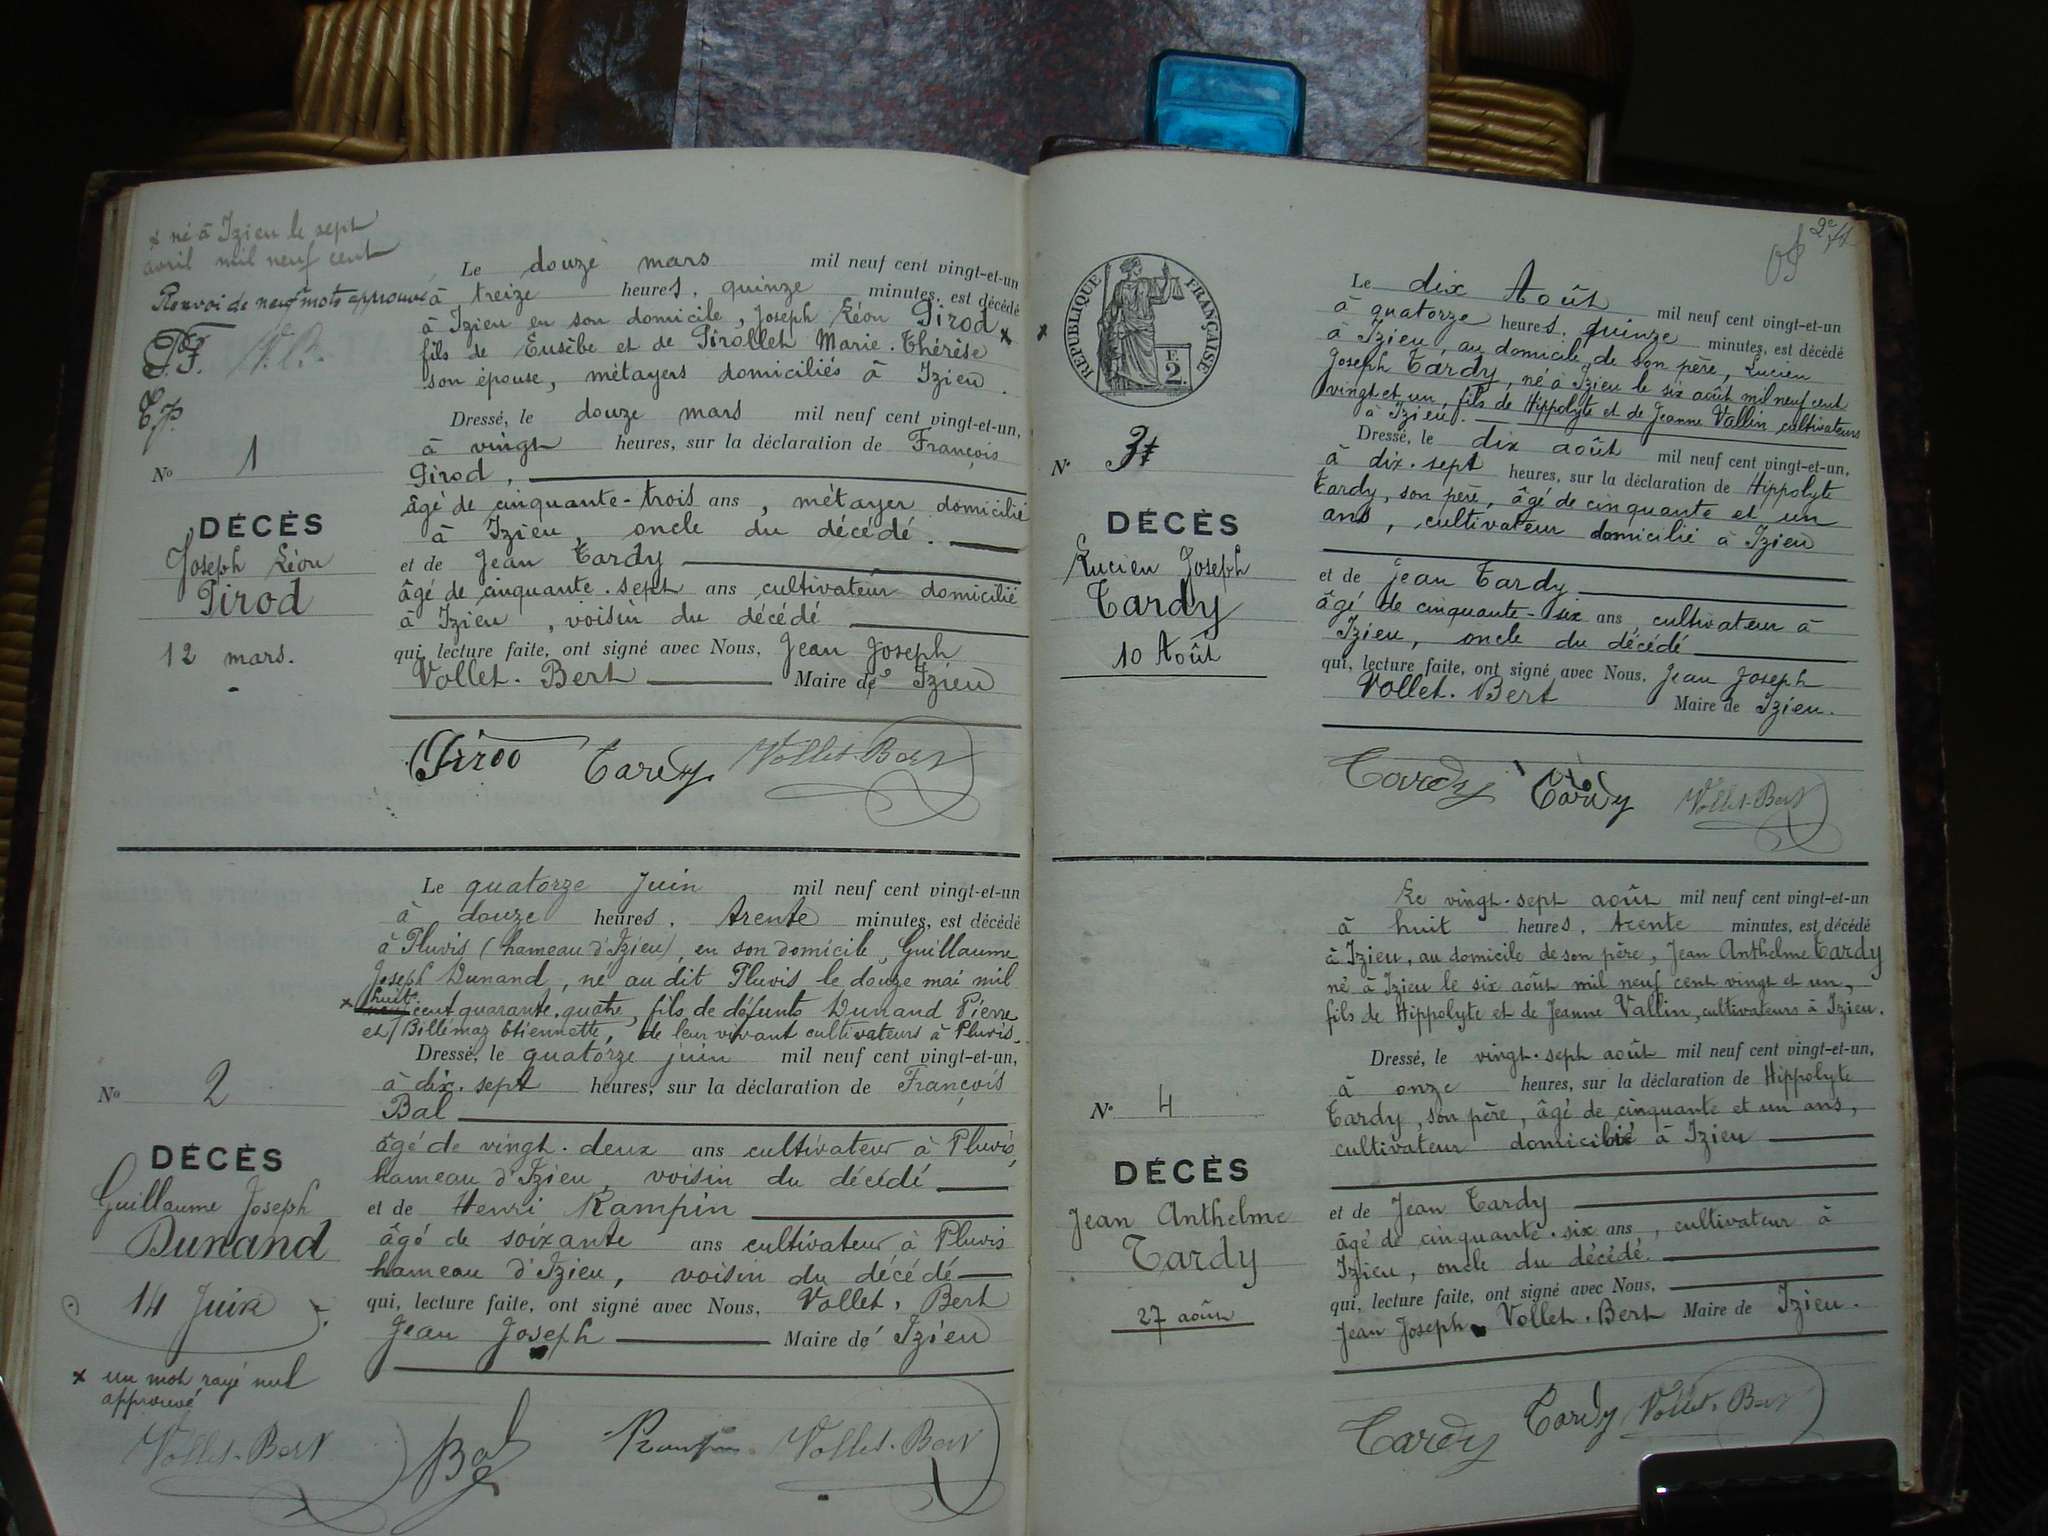 x né à Izieu le sept
avril mil neuf cent
Renvoi de neuf mots approuvé
V.B.
N° 1
DÉCÈS
Joseph Léon
Pirod
12 mars.
Le douze mars mil neuf cent vingt-et-un
à treize heures, quinze minutes, est décédé
à Izieu en son domicile, Joseph Léon Pirod x
fils de Eusèbe et de Pirollet Marie-Thérèse
son épouse, métayers domiciliés à Izieu.
Dressé, le douze mars mil neuf cent vingt-et-un,
à vingt heures, sur la déclaration de François
Pirod,
âgé de cinquante-trois ans, métayer domicilié
à Izieu, oncle du décédé.
et de Jean Tardy
âgé de cinquante-sept ans cultivateur domicilié
à Izieu, voisin du décédé
qui, lecture faite, ont signé avec Nous, Jean Joseph
Vollet-Bert Maire de Izieu
Pirod Tardy Vollet-Bert
N° 2
DÉCÈS
Guillaume Joseph
Dunand
14 Juin
x un mot rayé nul
approuvé
Vollet-Bert
Le quatorze Juin mil neuf cent vingt-et-un
à douze heures, trente minutes, est décédé
à Pluvis (hameau d'Izieu), en son domicile, Guillaume
Joseph Dunand, né au dit Pluvis le douze mai mil
x huit cent quarante-quatre, fils de défunts Dunand Pierre
et Billémaz Etiennette, de leur vivant cultivateurs à Pluvis.
Dressé, le quatorze juin mil neuf cent vingt-et-un,
à dix-sept heures, sur la déclaration de François
Bal
âgé de vingt-deux ans cultivateur à Pluvis,
hameau d'Izieu, voisin du décédé
et de Henri Rampin
âgé de soixante ans cultivateur à Pluvis
hameau d'Izieu, voisin du décédé
qui, lecture faite, ont signé avec Nous, Vollet-Bert
Jean Joseph Maire de Izieu
Bal Rampin Vollet-Bert
2e
RÉPUBLIQUE FRANÇAISE
2
N° 3
DÉCÈS
Lucien Joseph
Tardy
10 Août
Le dix Août mil neuf cent vingt-et-un
à quatorze heures, quinze minutes, est décédé
à Izieu, au domicile de son père, Lucien
Joseph Tardy, né à Izieu le six août mil neuf cent
vingt et un, fils de Hippolyte et de Jeanne Vallin cultivateurs
à Izieu.
Dressé, le dix août mil neuf cent vingt-et-un,
à dix-sept heures, sur la déclaration de Hippolyte
Tardy, son père, âgé de cinquante et un
ans, cultivateur domicilié à Izieu
et de Jean Tardy
âgé de cinquante-six ans, cultivateur à
Izieu, oncle du décédé
qui, lecture faite, ont signé avec Nous, Jean Joseph
Vollet-Bert Maire de Izieu.
Tardy Tardy Vollet-Bert
N° 4
DÉCÈS
Jean Anthelme
Tardy
27 août
Le vingt-sept août mil neuf cent vingt-et-un
à huit heures, trente minutes, est décédé
à Izieu, au domicile de son père, Jean Anthelme Tardy
né à Izieu le six août mil neuf cent vingt et un,
fils de Hippolyte et de Jeanne Vallin, cultivateurs à Izieu.
Dressé, le vingt-sept août mil neuf cent vingt-et-un,
à onze heures, sur la déclaration de Hippolyte
Tardy, son père, âgé de cinquante et un ans,
cultivateur domicilié à Izieu
et de Jean Tardy
âgé de cinquante-six ans, cultivateur à
Izieu, oncle du décédé.
qui, lecture faite, ont signé avec Nous,
Jean Joseph Vollet-Bert Maire de Izieu.
Tardy Tardy Vollet-Bert